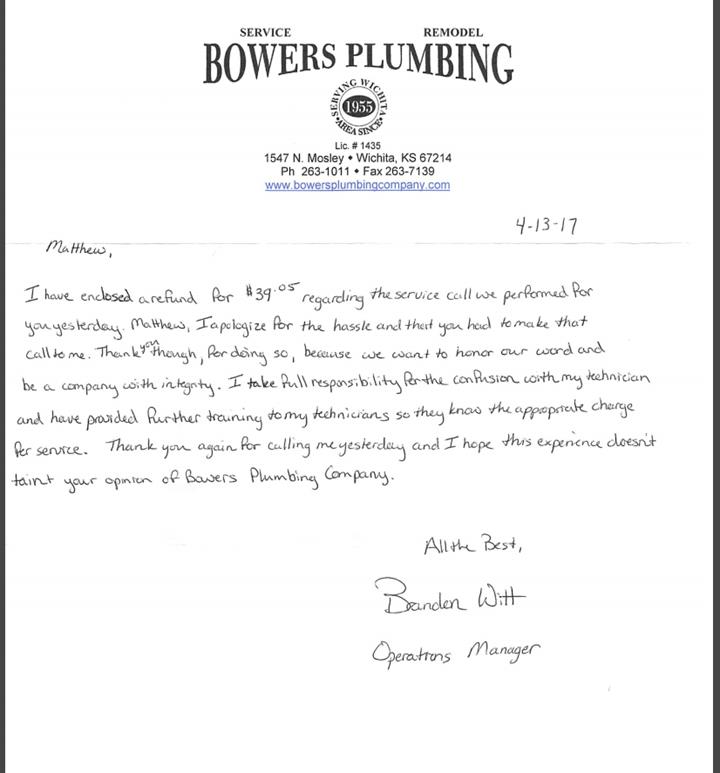 SERVICE REMODEL
BOWERS PLUMBING
SERVING WICHITA
1955
AREA SINCE
Lic. # 1435
1547 N. Mosley • Wichita, KS 67214
Ph 263-1011 • Fax 263-7139
www.bowersplumbingcompany.com
4-13-17
Matthew,
I have enclosed a refund for $39.05 regarding the service call we performed for
you yesterday. Matthew, I apologize for the hassle and that you had to make that
call to me. Thank you though, for doing so, because we want to honor our word and
be a company with integrity. I take full responsibility for the confusion with my technician
and have provided further training to my technicians so they know the appropriate charge
per service. Thank you again for calling me yesterday and I hope this experience doesn't
taint your opinion of Bowers Plumbing Company.
All the Best,
Branden Witt
Operations Manager